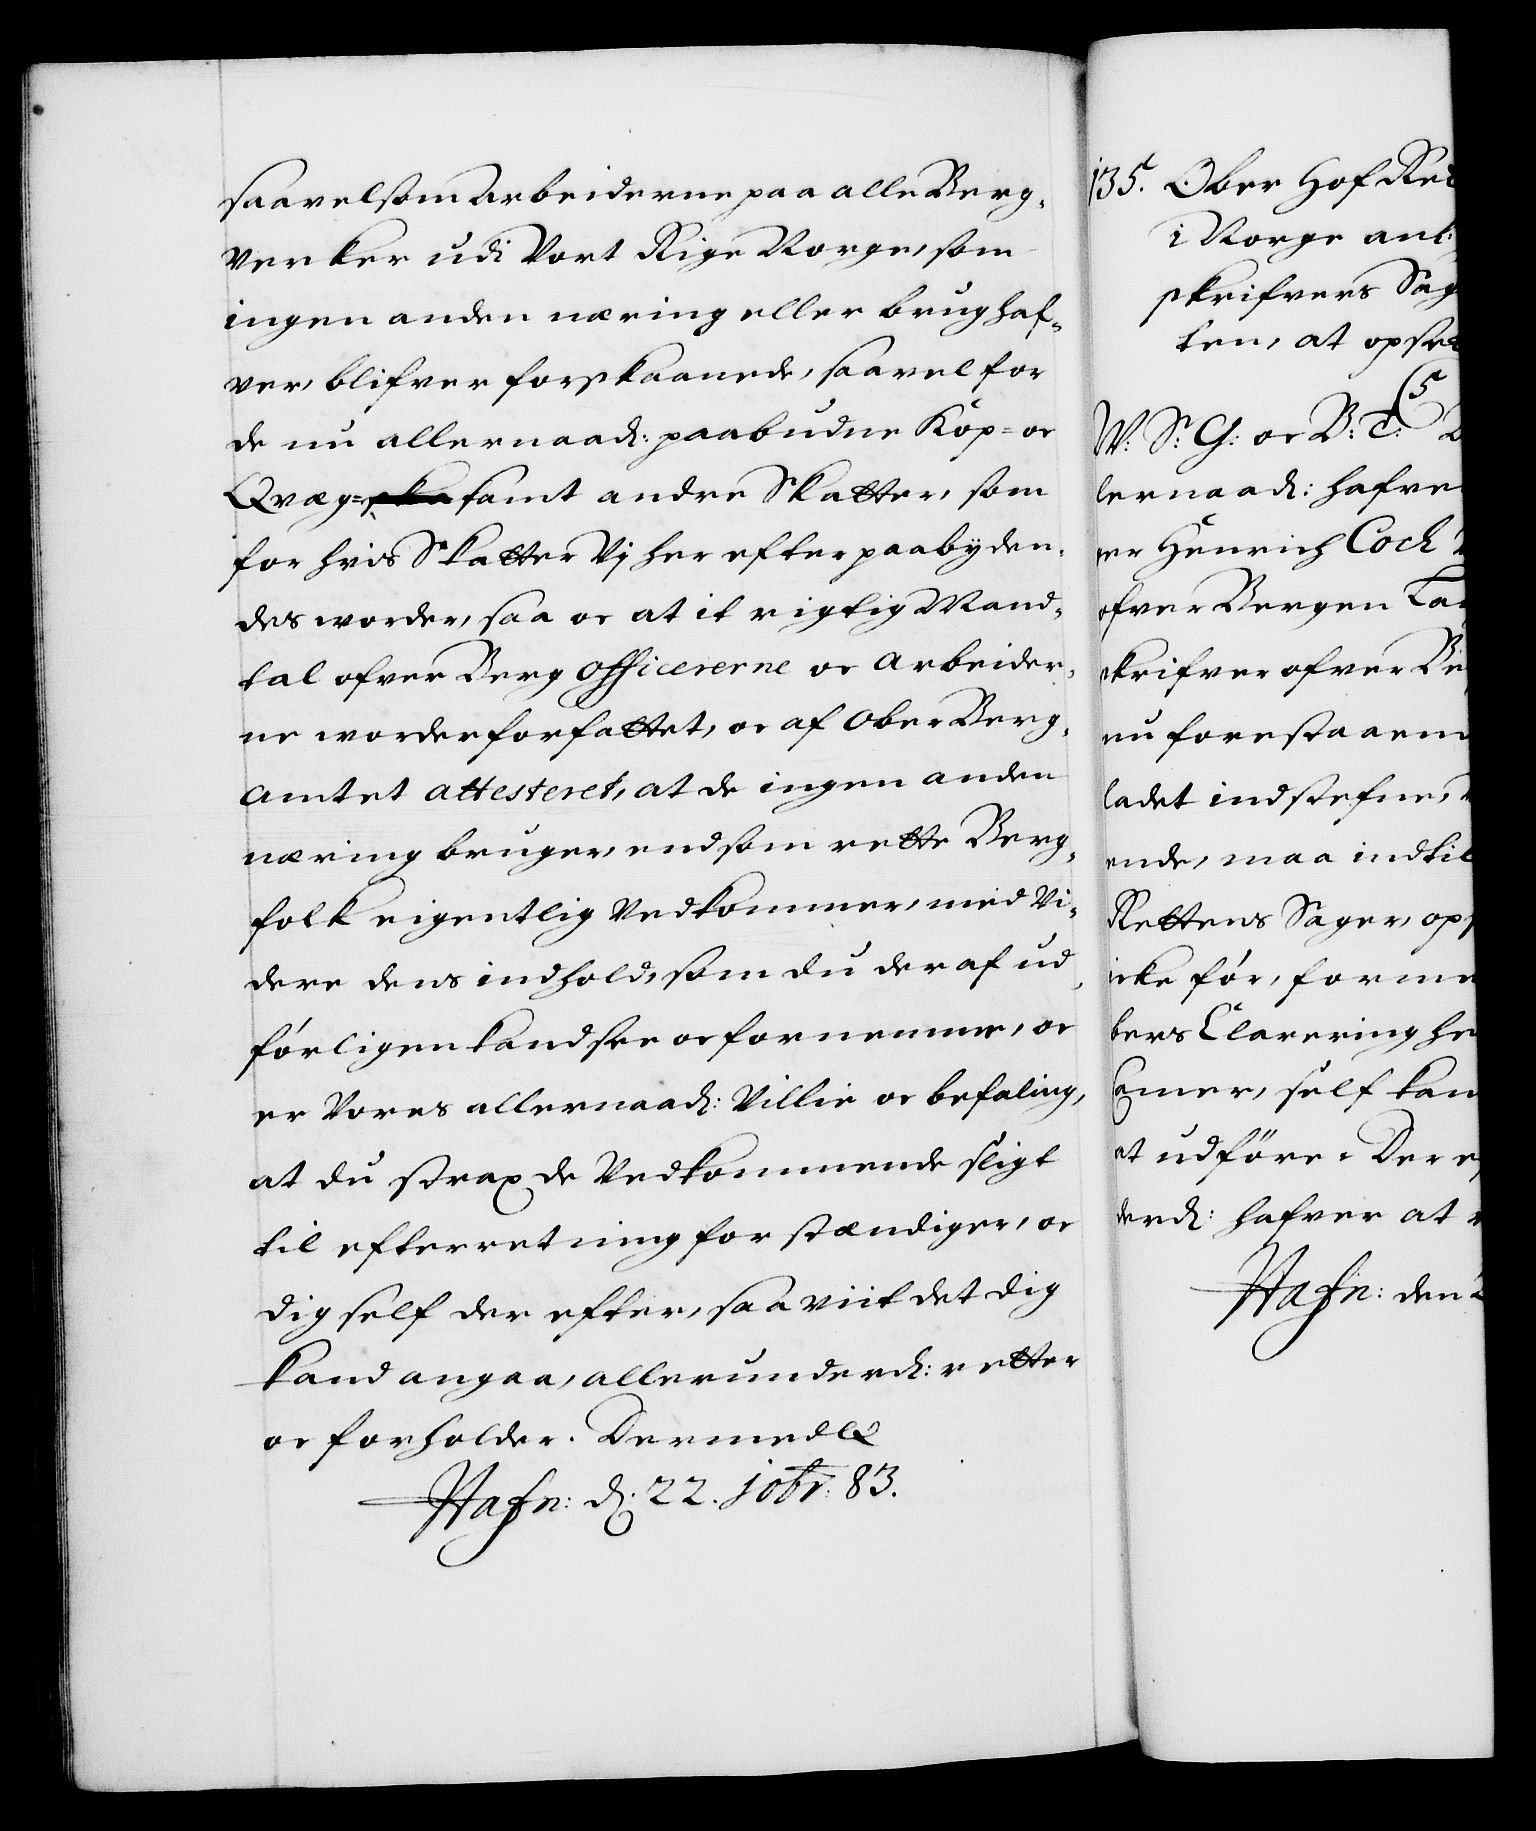 saavelsom Arbeiderne paa alle Berg-
Verker udi Vort Rige Norge, som
ingen anden næring eller brug haf-
ver, blifver forskaanede, saavel for
de nu allernaad: paabudne Kop= oc
Qvæg= samt andre Skatter, som
for hvis Skatter Vj her efter paabyden-
des worder, saa oc at it rigtig Mand-
tal ofver Berg Officererne oc Arbeider-
ne worder forfattet, oc af Ober Berg-
Amtet attesteret, at de ingen anden
næring bruger, end som rette Berg-
folk eigentlig Vedkommer, med Vi-
dere dens indhold, som du deraf ud-
førligen kand see oc fornemme, oc
er Vores allernaad: Villie oc befaling,
at du strax de Vedkommende sligt
til efterretning forstændiger, oc
dig self der efter, saa viit det dig
kand angaa, allerunderd: retter
oc forholder. Dermed &
Hafn: d: 22. jobr: 83.
135. Ober Hof Ret
i Norge ant:
skrifvers Sag
ten, at opset
W: S: G: oc B: T:
lernaad: hafve
er Henrich Coch
ofver Bergen
skrifver ofver
nu forestaaen
ladet indstefne,
ende, maa indtil
Rettens Sager, ops
icke før, for me
bers Clarering he
Camer, self kan
at udføre. Der
derd: hafver at
Hafn: den